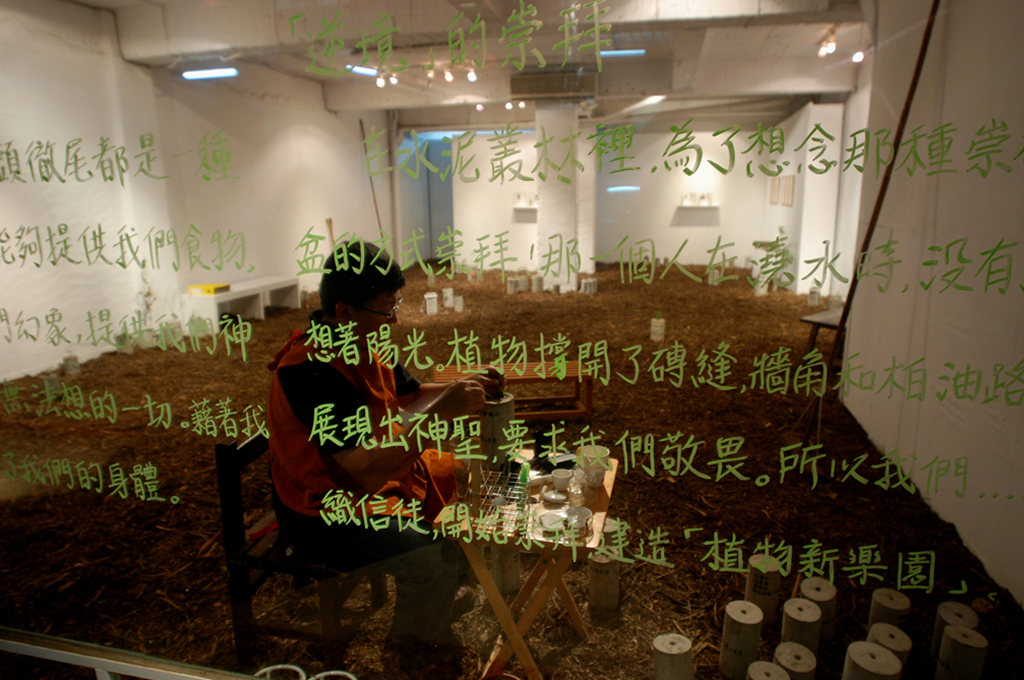 「逆境」的崇拜
頭徹尾都是一種
能夠提供我們食物,
們幻象,提供我們神
無法想的一切。藉著我
了我們的身體。
在水泥叢林裡,為了想念那種崇
盆的方式崇拜,那一個人在澆水時,沒有
想著陽光。植物撐開了磚縫,牆角和柏油路
展現出神聖,要求我們敬畏。所以我們...
織信徒,開始崇拜,建造「植物新樂園」。